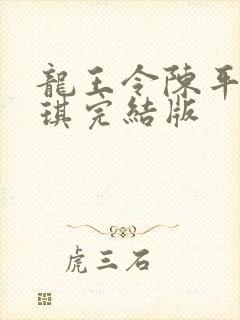 龍王令陳平
琪完結版
虎三石